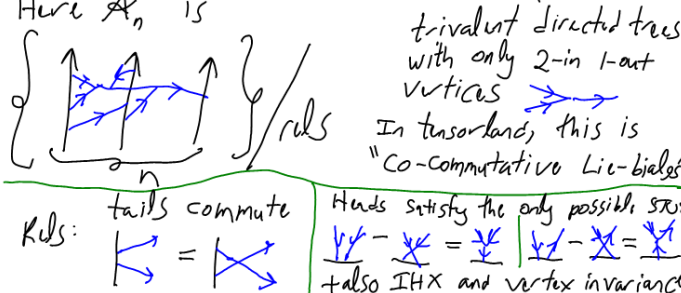 Here 𝒜ₙ is
n
/ rels
trivalent directed trees
with only 2-in 1-out
vertices
In tensorland, this is
"Co-Commutative Lie-bialge
Rels:
tails commute
=
Heads satisfy the only possible STU
- =
- =
+also IHX and vertex invariance